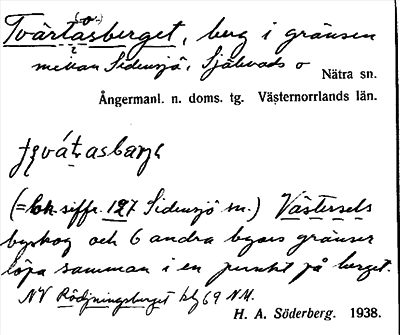 (-o-)
Tvärtåsberget, berg i gränsen
mellan Sidensjö, Själevads o
Nätra sn.
Ångermanl. n. doms. tg. Västernorrlands län.
(= siffr. 127 Sidensjö sn.) Västersels
byskog och 6 andra byars gränser
löpa samman i en punkt på berget.
NV Rödjningsberget blg 69 N.M.
H. A. Söderberg. 1938.